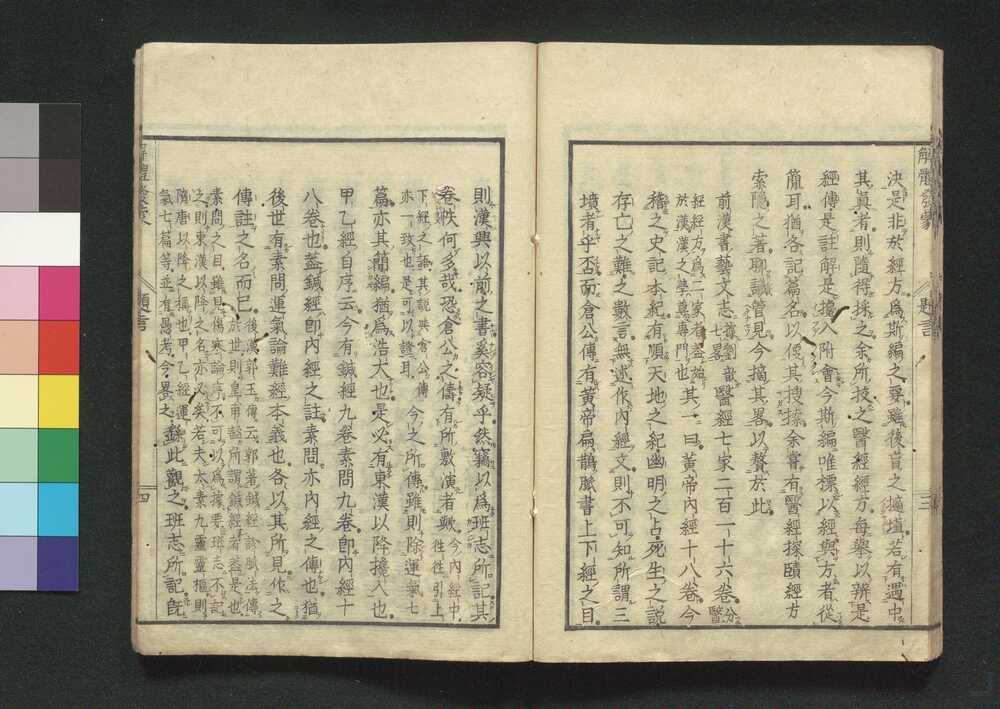 決是非於經方爲斯編之要雖後耳之擿埴若有遇中
其眞者則隨得採之余所技之醫經經方每藥以辨是
經傳是註解是攙入附會今斯編唯標以經與方者從
簡耳猶各記篇名以便其搜索余嘗有醫經探賾經方
索隱之著聊試管見今摘其畧以贅於此
前漢書藝文志 醫經七家二百一十六卷
經經方爲二家者蓋始
於漢漢之學尊專門也 其一曰黃帝內經十八卷今
稽之史記本紀有順天地之紀幽明之占死生之說
存亡之難之數言無述作內經文則不可知所謂三
墳者乎否而倉公傳有黃帝扁鵲脈書上下經之目
題言
三
則漢興以前之書奚容疑乎然竊以爲班志所記其
卷帙何多哉恐倉公之儔有所敷演者歟 今內經中往往引上
下經之語其說與倉公傳
亦一致也是可以證耳 今之所傳雖則除運氣七
篇亦其簡編猶爲浩大也是必有東漢以降攙入也
甲乙經自序云今有鍼經九卷素問九卷卽內經十
八卷也蓋鍼經卽內經之註素問亦內經之傳也猶
後世有素問運氣論難經本義也各以其所見作之
傳註之名而已 後漢郭玉傳云郭著鍼經診脈法傳
於世則皇甫謐所謂鍼經者蓋是也
素問之目雖見傷寒論序不可以爲據要班志不記
之則東漢以降之名亦必矣若夫太素九靈靈樞則
隋唐以降之稱也甲乙經運
氣七篇等並有愚考今畧之 繇此觀之班志所記旣
題言
四